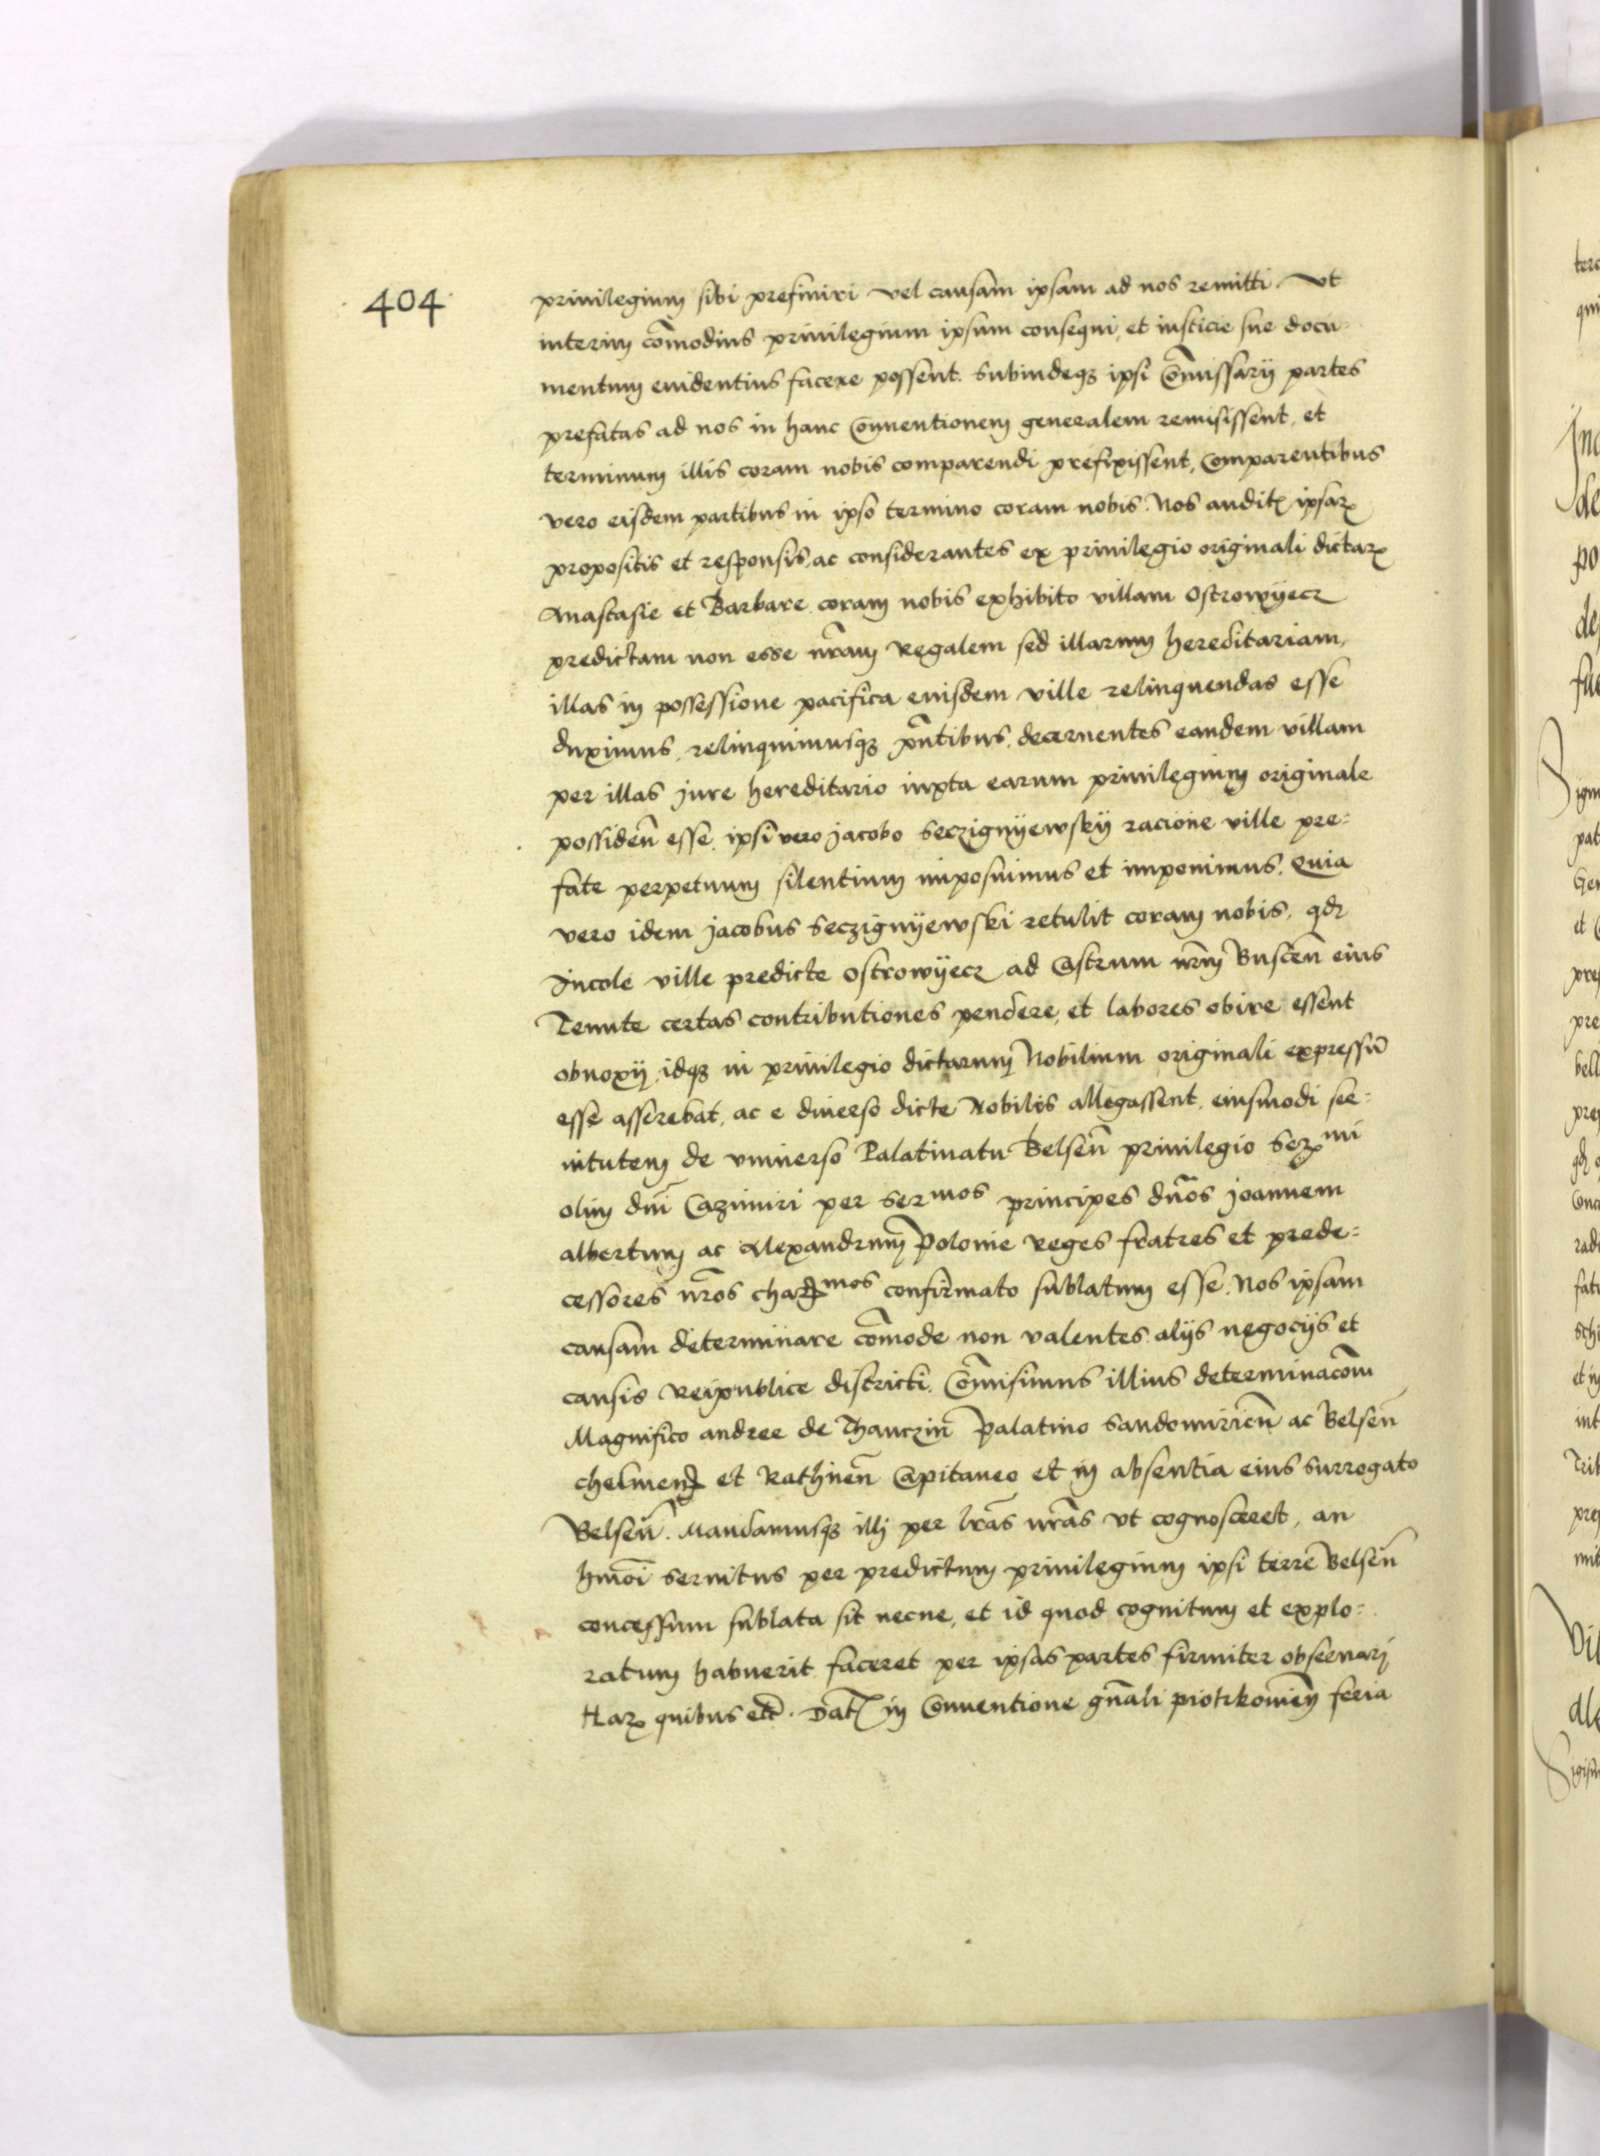 404
privilegium sibi prefiniri vel causam ipsam ad nos remitti. Vt
interim cōmodius privilegium ipsum consequi, et iusticie sue docu=
mentum evidentius facere possent. Subindeqȝ ipsi Cōmissarij partes
prefatas ad nos in hanc Conventionem generalem remisissent, et
terminum illis coram nobis comparendi prefixissent, Comparentibus
vero eisdem partibus in ipso termino coram nobis. Nos auditꝭ ipsaꝝ
propositis et responsis, ac considerantes ex privilegio originali dictaꝝ
Anastasie et Barbare coram nobis exhibito villam Ostrowyecz
predictam non esse nr̄am Regalem sed illarum hereditariam,
illas in possessione pacifica eiusdem ville relinquendas esse
duximus, relinquimusqȝ pn̄tibus, decernentes eandem villam
per illas jure hereditario iuxta earum privilegium originale
possiden̄ esse, ipsi vero Jacobo Seczignyewskij racione ville pre=
fate perpetuum silentium imposuimus et imponimus. Quia
vero idem Jacobus Seczignyewski retulit coram nobis, qđ
Incole ville predicte Ostrowyecz ad Castrum nr̄m Buscen̄ eius
Tenute certas contributiones pendere, et labores obire essent
obnoxij, idqȝ in privilegio dictarum Nobilium originali expressū
esse asserebat, ac e diverso dicte Nobiles allegassent, eiusmodi ser=
vitutem de vniverso Palatinatu Belsen̄ privilegio Serᵐⁱ
olim dn̄i Cazimiri per serᵐᵒˢ principes dn̄os Joannem
albertum ac Alexandrum Polonie Reges fratres et prede=
cessores nr̄os charᵐᵒˢ confirmato sublatum esse. Nos ipsam
causam determinare cōmode non valentes alijs negocijs et
causis Reipublice districti, Cōmisimus illius determinacōm
Magnifico andree de Thanczin̄ Palatino Sandomirien̄ ac Belsen̄
chelmen̄ et Rathnen̄ Capitaneo et in absentia eius surrogato
Belsen̄. Mandamusqȝ illj per lr̄as nr̄as vt cognosceret, an
hmōi servitus per predictum privilegium ipsi terre Belsen̄
concessum sublata sit necne, et id quod cognitum et explo=
ratum habuerit faceret per ipsas partes firmiter observarj
Haꝝ quibus etc̄. Datꝭ in Conventione gn̄ali piotrkovien̄ feria